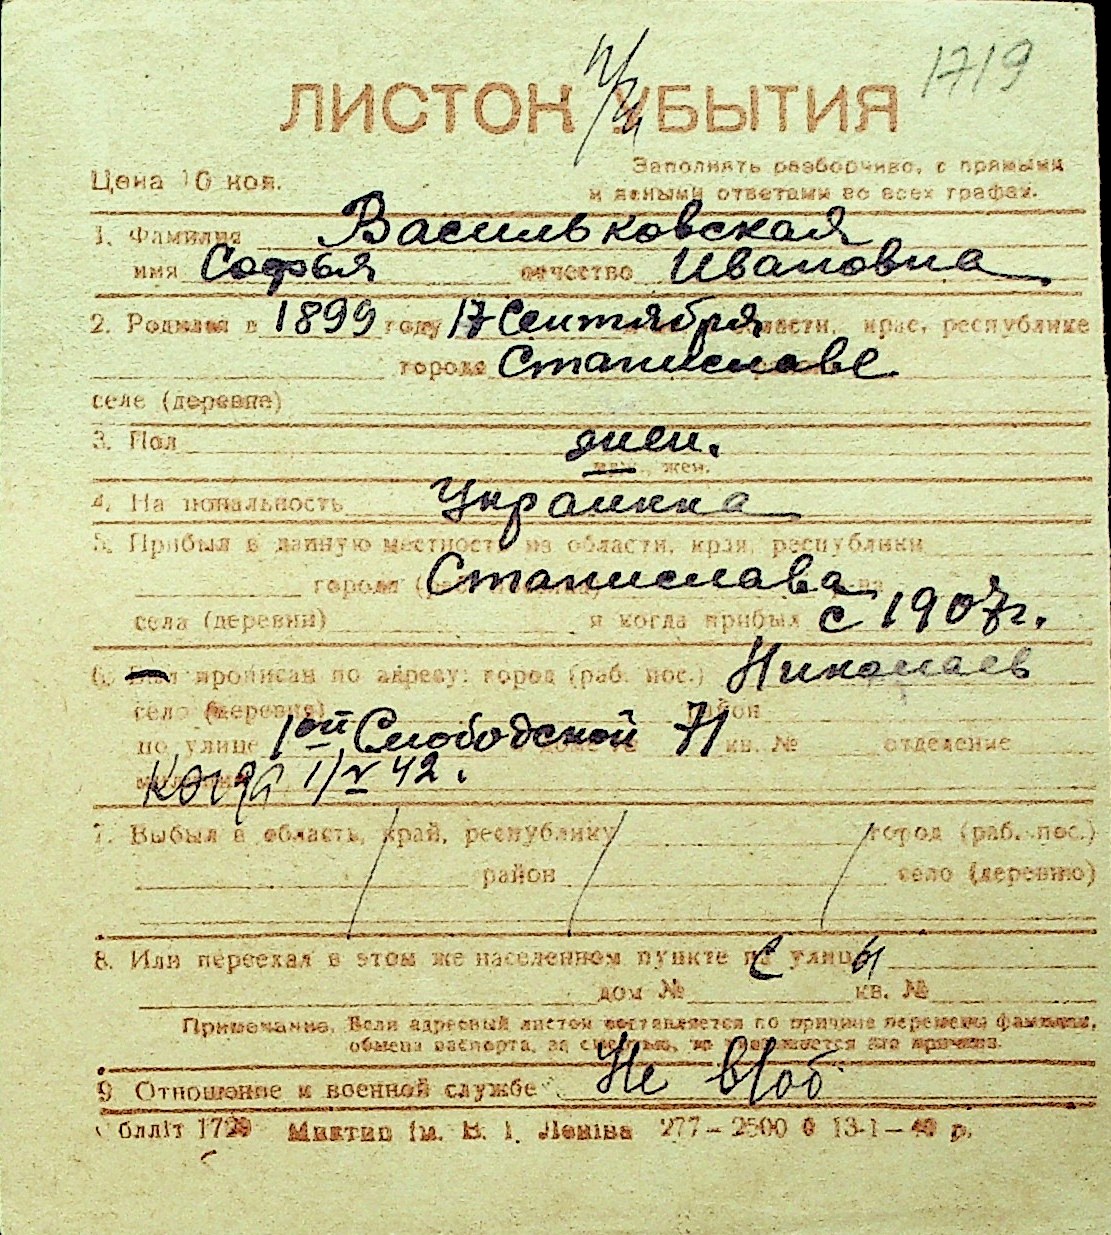 1719
ЛИСТОК УБЫТИЯ
Цена 10 коп.
Заполнять разборчиво, с прямыми
и ясными ответами во всех графах.
1. Фамилия Васильковская
имя Софья отчество Ивановна
2. Родился в 1899 году 17 Сентября области, края, республике
городе Станиславе
селе (деревне)
3. Пол жен.
муж., жен.
4. Национальность Украинка
5. Прибыл в данную местность из области, края, республики
города Станислава р-на
села (деревни) и когда прибыл с 1907 г.
6. Был прописан по адресу: город (раб. пос.) Николаев
село (деревня) район
по улице 1ой Слободской 71 кв. № отделение
когда 1/V 42.
7. Выбыл в область, край, республику город (раб. пос.)
район село (деревню)
8. Или переехал в этом же населенном пункте на улицу
дом № кв. №
Примечание. Если адресный листок составляется по причине перемены фамилии,
обмена паспорта, за смертью, то указывается эта причина.
9 Отношение к военной службе Не в/об
Облліт 1729 Миктип ім. В. І. Леніна 277–2500 0 13-1–40 р.